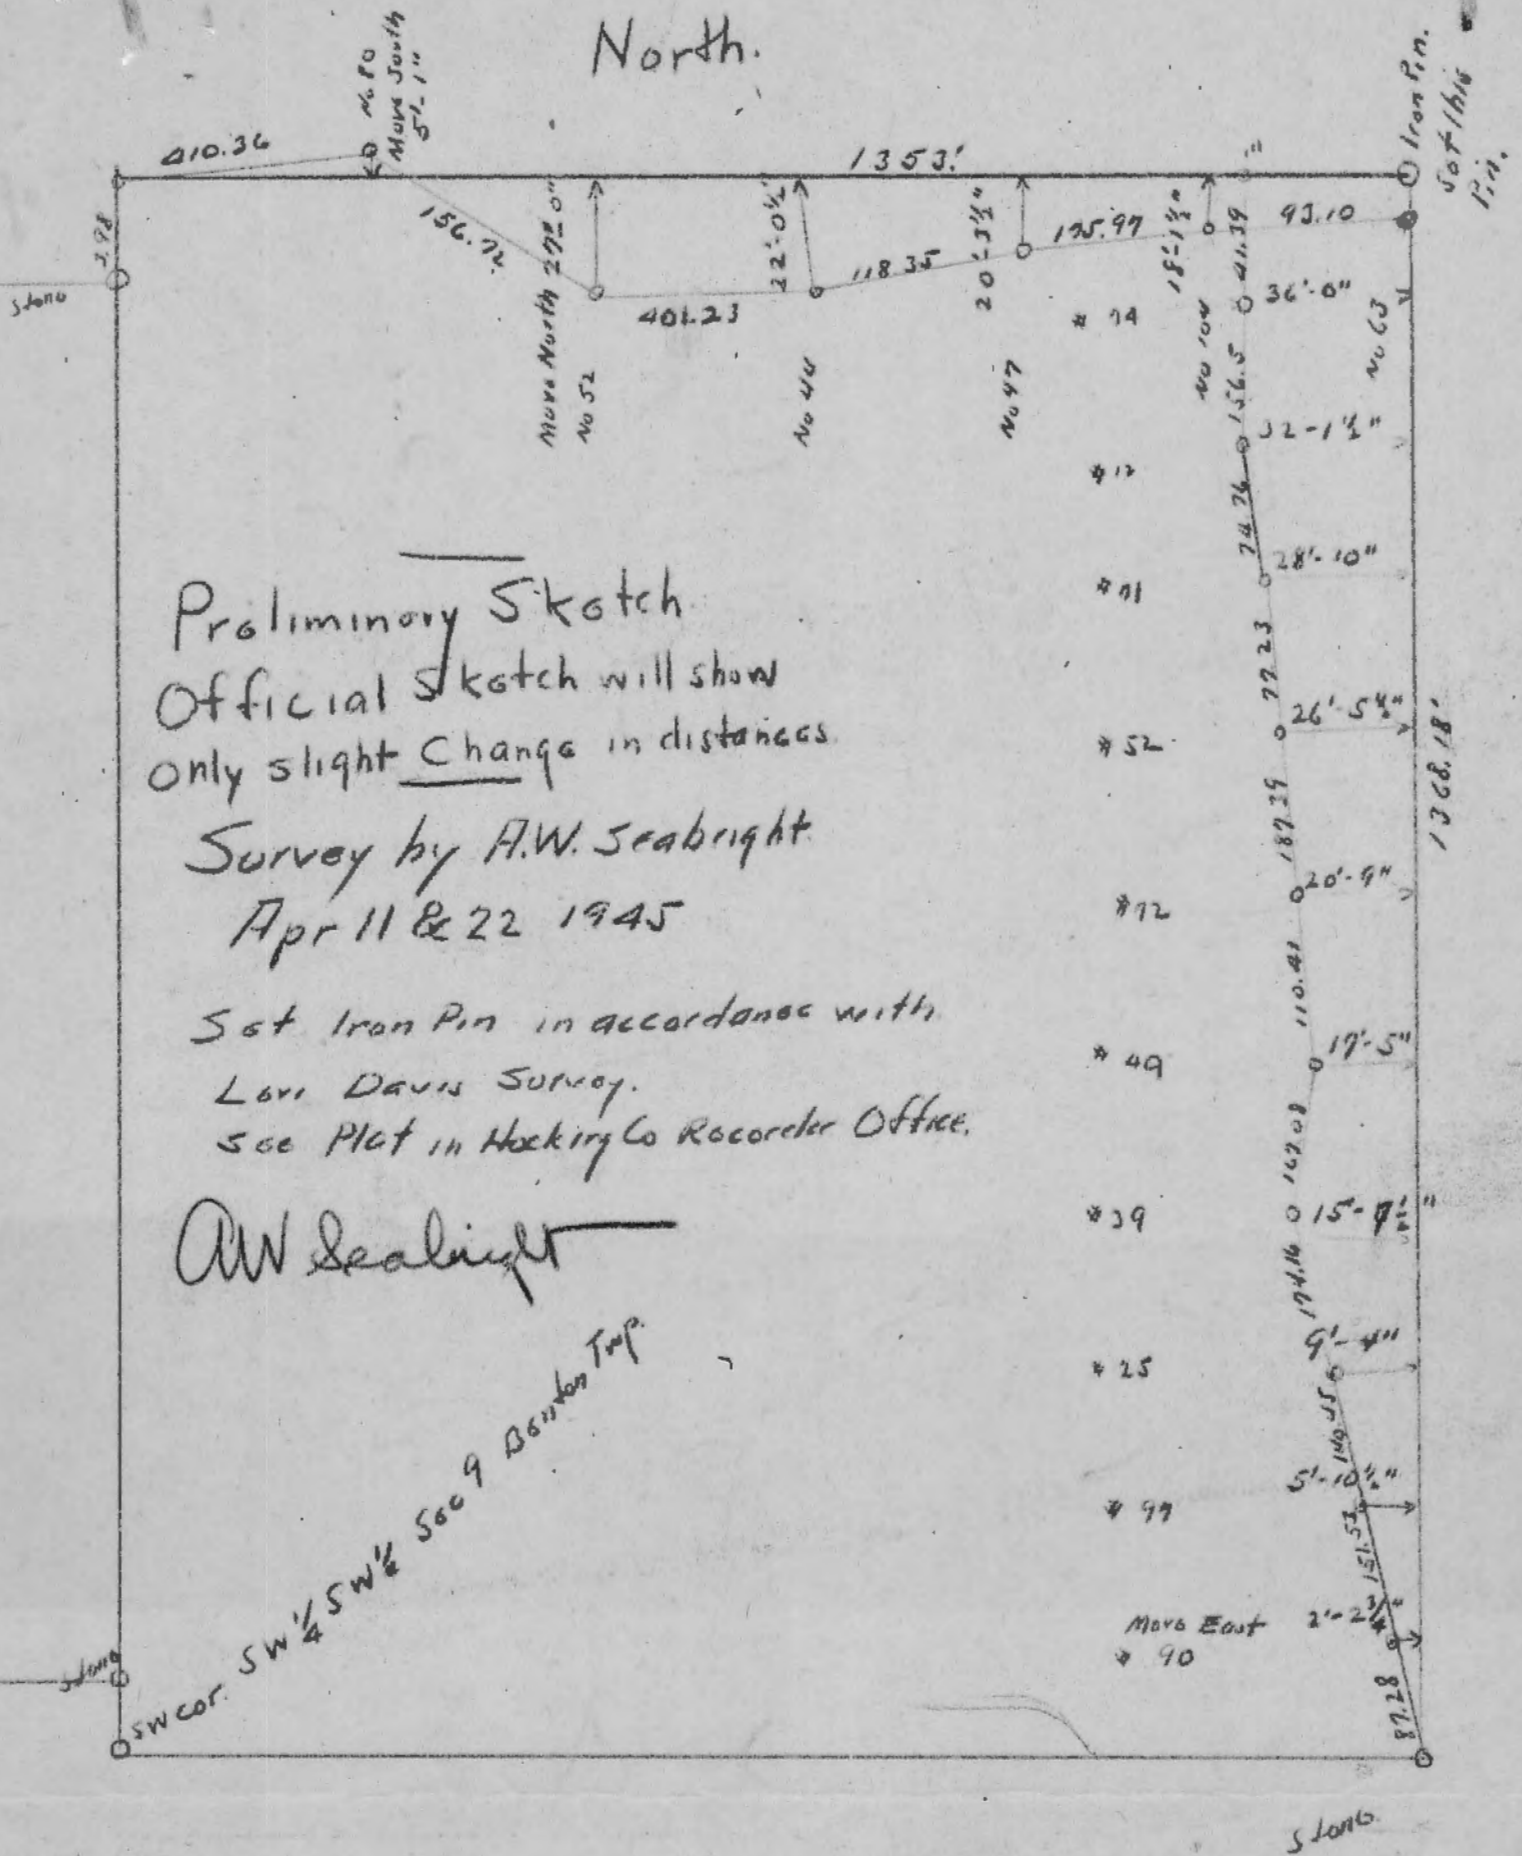 North.
No 80
Move South
5'-1"
Iron Pin.
Set this
Pin.
410.36
1353'
3.98
Stone
156.72
Move North 27'-0"
No 52
401.23
22'-0½"
No 44
118.35
20'-3½"
No 47
175.97
18'-1½"
No 104
41.39
93.10
36'-0"
No 63
# 74
156.5
32-1½"
# 12
74.76
28'-10"
# 71
77.23
26'-5½"
# 52
187.39
1368.18'
20'-9"
# 72
110.41
17'-5"
# 49
167.08
15'-7½"
# 39
174.16
9'-4"
# 25
140.45
5'-10½"
# 97
151.53
Move East 2'-2¾"
# 90
87.28
Preliminary Sketch
Official Sketch will show
only slight Change in distances.
Survey by A.W. Seabright.
Apr 11 & 22 1945
Set Iron Pin in accordance with
Levi Davis Survey.
See Plat in Hocking Co Recorder Office.
AW Seabright
SW cor. SW ¼ SW ¼ Sec 9 Benton Twp.
Stone
Stone